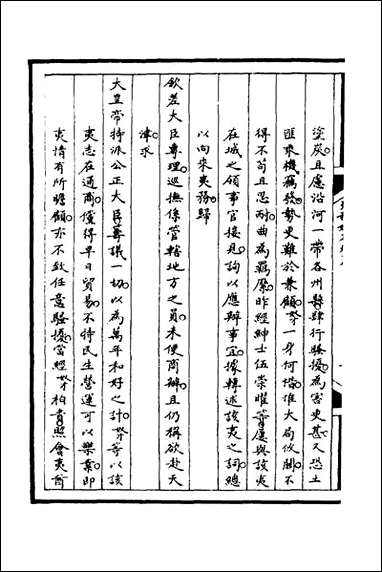 塗炭且慮沿河一帶各州縣肆行騷擾為害更甚又恐土
匪乘機竊發勢更難於兼顧 一身何惜惟大局攸關不
得不苟且忍耐曲為羈縻昨經紳士伍崇曜等屢與該夷
在城之領事官接見詢以應辦事宜據轉述該夷之詞總
以向來夷務歸
欽差大臣專理巡撫係管轄地方之員未便商辦且仍稱欲赴天
津求
大皇帝特派公正大臣籌議一切以為萬年和好之計 等以該
夷志在通商儻得早日貿易不特民生營運可以樂業即
夷情有所瞻顧亦不致任意騷擾當經 柏貴照會夷酋